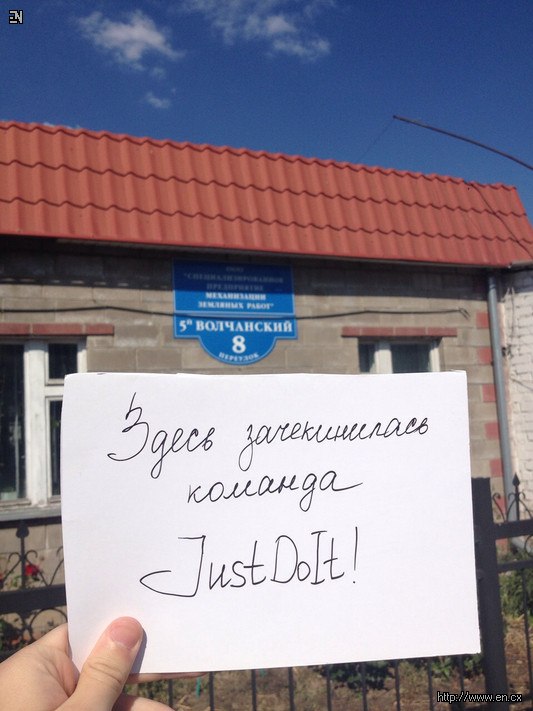 EN
ООО
"СПЕЦИАЛИЗИРОВАННОЕ
ПРЕДПРИЯТИЕ
МЕХАНИЗАЦИИ
ЗЕМЛЯНЫХ РАБОТ"
5й ВОЛЧАНСКИЙ
8
ПЕРЕУЛОК
Здесь зачекинилась
команда
JustDoIt!
http://www.en.cx